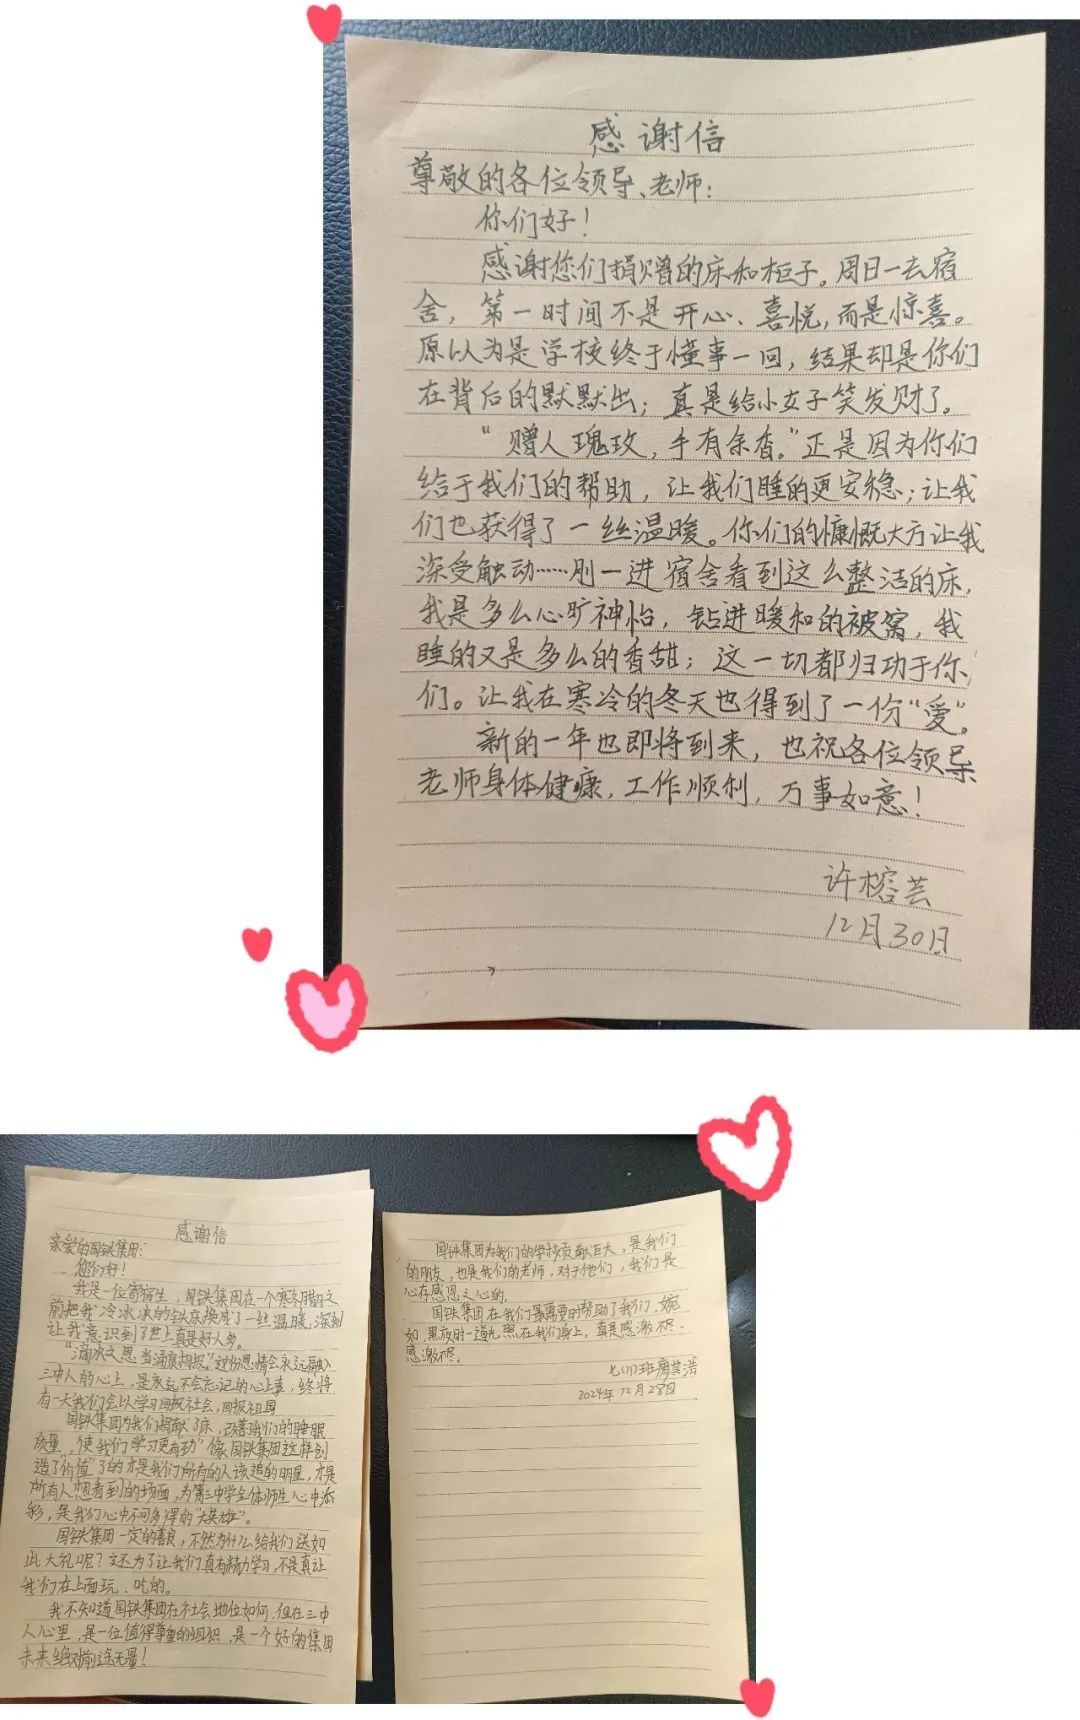 感谢信
尊敬的各位领导、老师:
你们好!
感谢您们捐赠的床和柜子。周日一去宿
舍,第一时间不是开心、喜悦,而是惊喜。
原以为是学校终于懂事一回,结果却是你们
在背后的默默出;真是给小女子笑发财了。
“赠人瑰玫,手有余香。”正是因为你们
给于我们的帮助,让我们睡的更安稳;让我
们也获得了一丝温暖。你们的慷慨大方让我
深受触动……刚一进宿舍看到这么整洁的床,
我是多么心旷神怡,钻进暖和的被窝,我
睡的又是多么的香甜;这一切都归功于你
们。让我在寒冷的冬天也得到了一份“爱”。
新的一年也即将到来,也祝各位领导
老师身体健康,工作顺利,万事如意!
许榕芸
12月30日
感谢信
亲爱的国铁集团:
您们好!
我是一位寄宿生,国铁集团在一个寒冬腊月之
前把我冷冰冰的铁床换成了一丝温暖,深刻
让我意识到了世上真是好人多。
“滴水之恩当涌泉相报。”这份恩情会永远融入
三中人的心上,是永远不会忘记的心上事,终将
有一天我们会以学习回报社会,回报祖国
国铁集团为我们捐献了床,改善了我们的睡眠
质量,使我们学习更有劲”像国铁集团这样创
造了“价值”了的才是我们所有的人该追的明星,才是
所有人想看到的场面,为第三中学全体师生心中添
彩,是我们心中不可多得的“大英雄”。
国铁集团一定的善良,不然为什么给我们送如
此大礼呢?文还为了让我们真有精力学习,不是真让
我们在上面玩、吃的。
我不知道国铁集团在社会地位如何,但在三中
人心里,是一位值得尊重的组织,是一个好的集团
未来绝对前途无量!
国铁集团为我们的学校贡献巨大,是我们
的朋友,也是我们的老师,对于他们,我们是
心存感恩之心的。
国铁集团在我们最需要时帮助了我们,婉
如,黑夜时一道光照在我们身上,真是感激不尽、
感激不尽。
七(1)班廖其
2024年12月28日